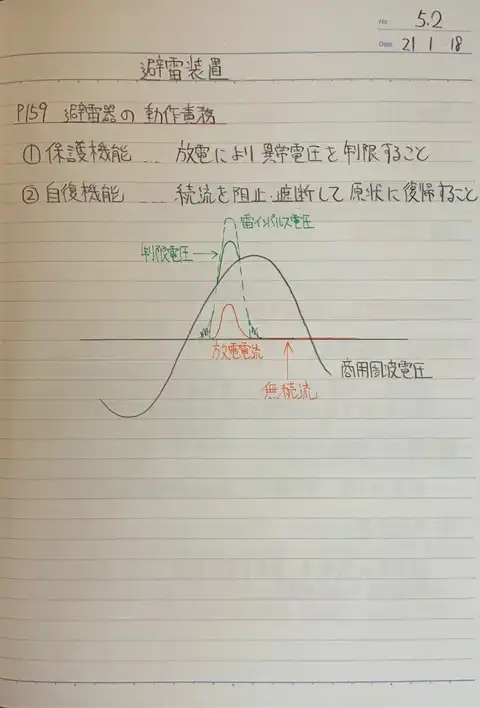 No 5.2
Date 21 1 18
避雷装置
P159 避雷器の動作責務
① 保護機能 … 放電により異常電圧を制限すること
② 自復機能 … 続流を阻止・遮断して原状に復帰すること
雷インパルス電圧
制限電圧
放電電流
商用周波電圧
無続流